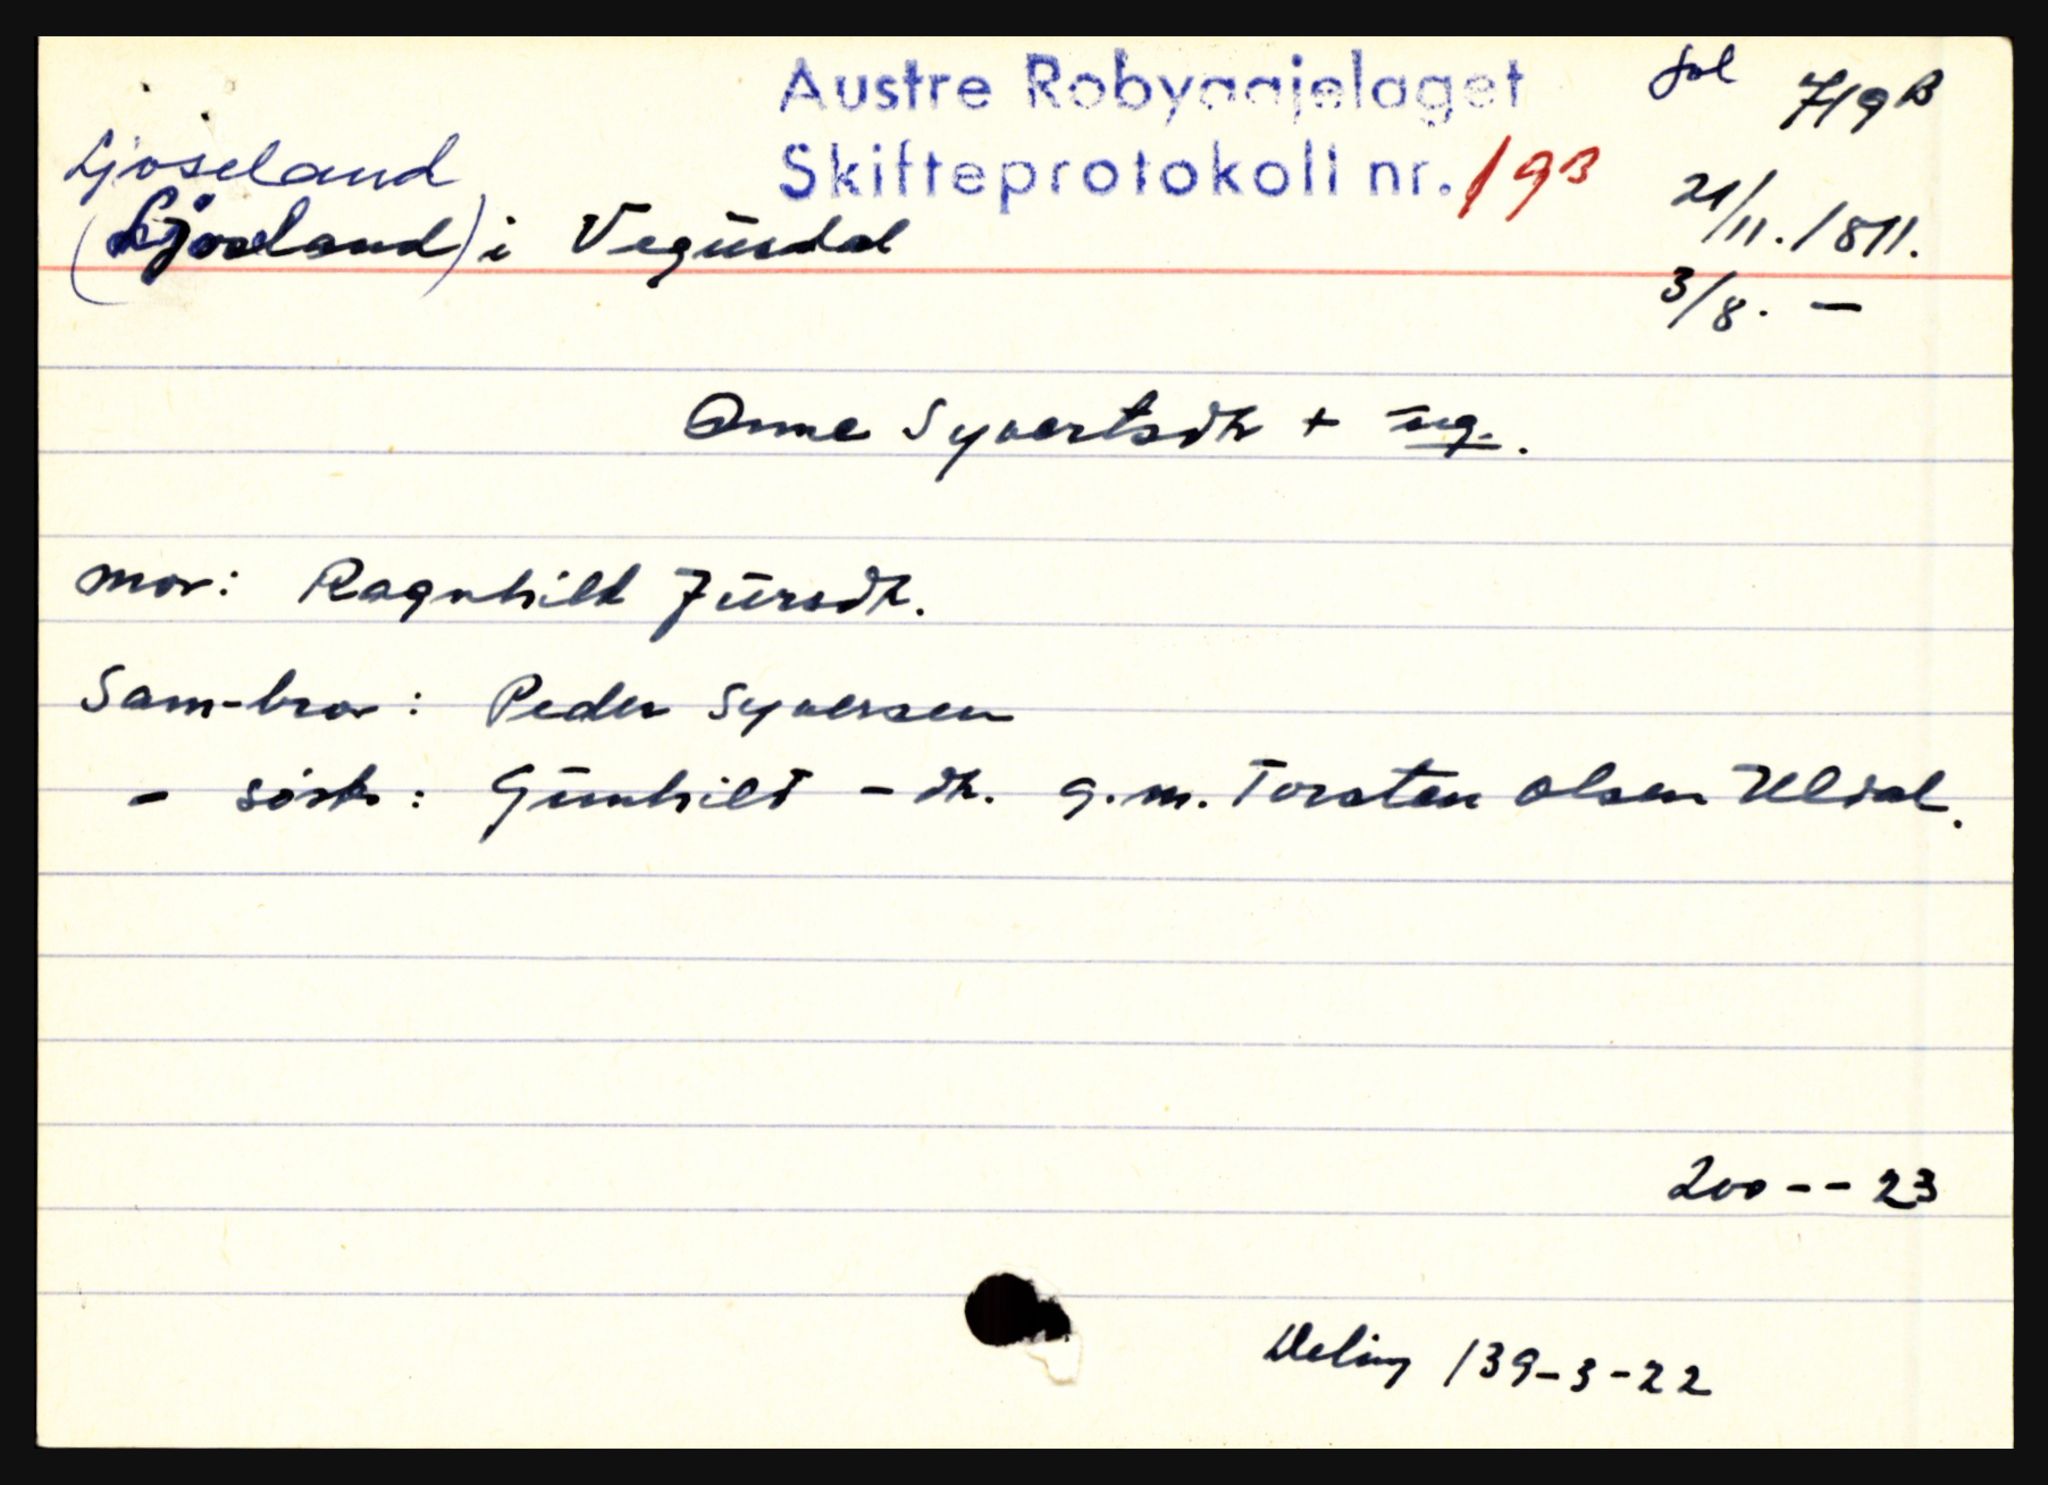 Austre Robyggjelaget
fol 719 B
Skifteprotokoll nr. 19B
Ljoseland
21/11. 1811.
(Ljosland) i Vegusdal
3/8. —
Anne Syvertsdtr + ug.
mor: Ragnhild Jursdtr.
Sam-bror: Peder Syversen
- søstr: Gunhild - dtr. g.m. Torsten Olsen Uldal.
200 -- 23
Deling 139-3-22